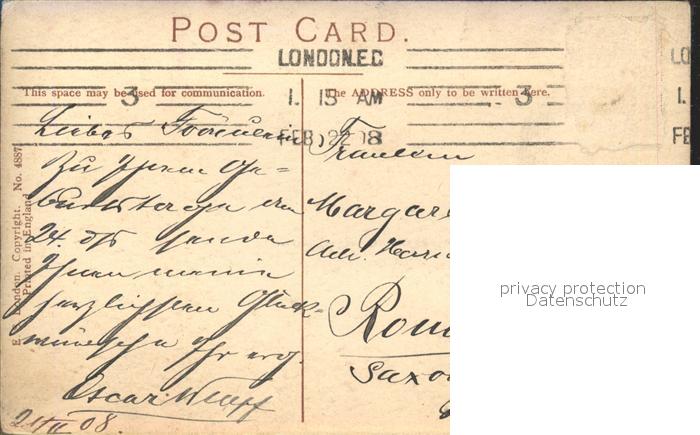 POST CARD.
LONDON.E.C
This space may be used for communication.
The ADDRESS only to be written here.
3
1. 15 AM
3
FEB 22 08
LO
1.
FE
Liebes Fräulein
Zu Ihrem Ge=
burtstage am
24. ds sende
Ihnen meine
herzlichsten Glück=
wünsche Ihr erg.
Oscar Wulff
21/II 08.
Fräulein
Margare
Adr. Herrn
Saxo
London. Copyright. No. 4887
Printed in England
privacy protection
Datenschutz